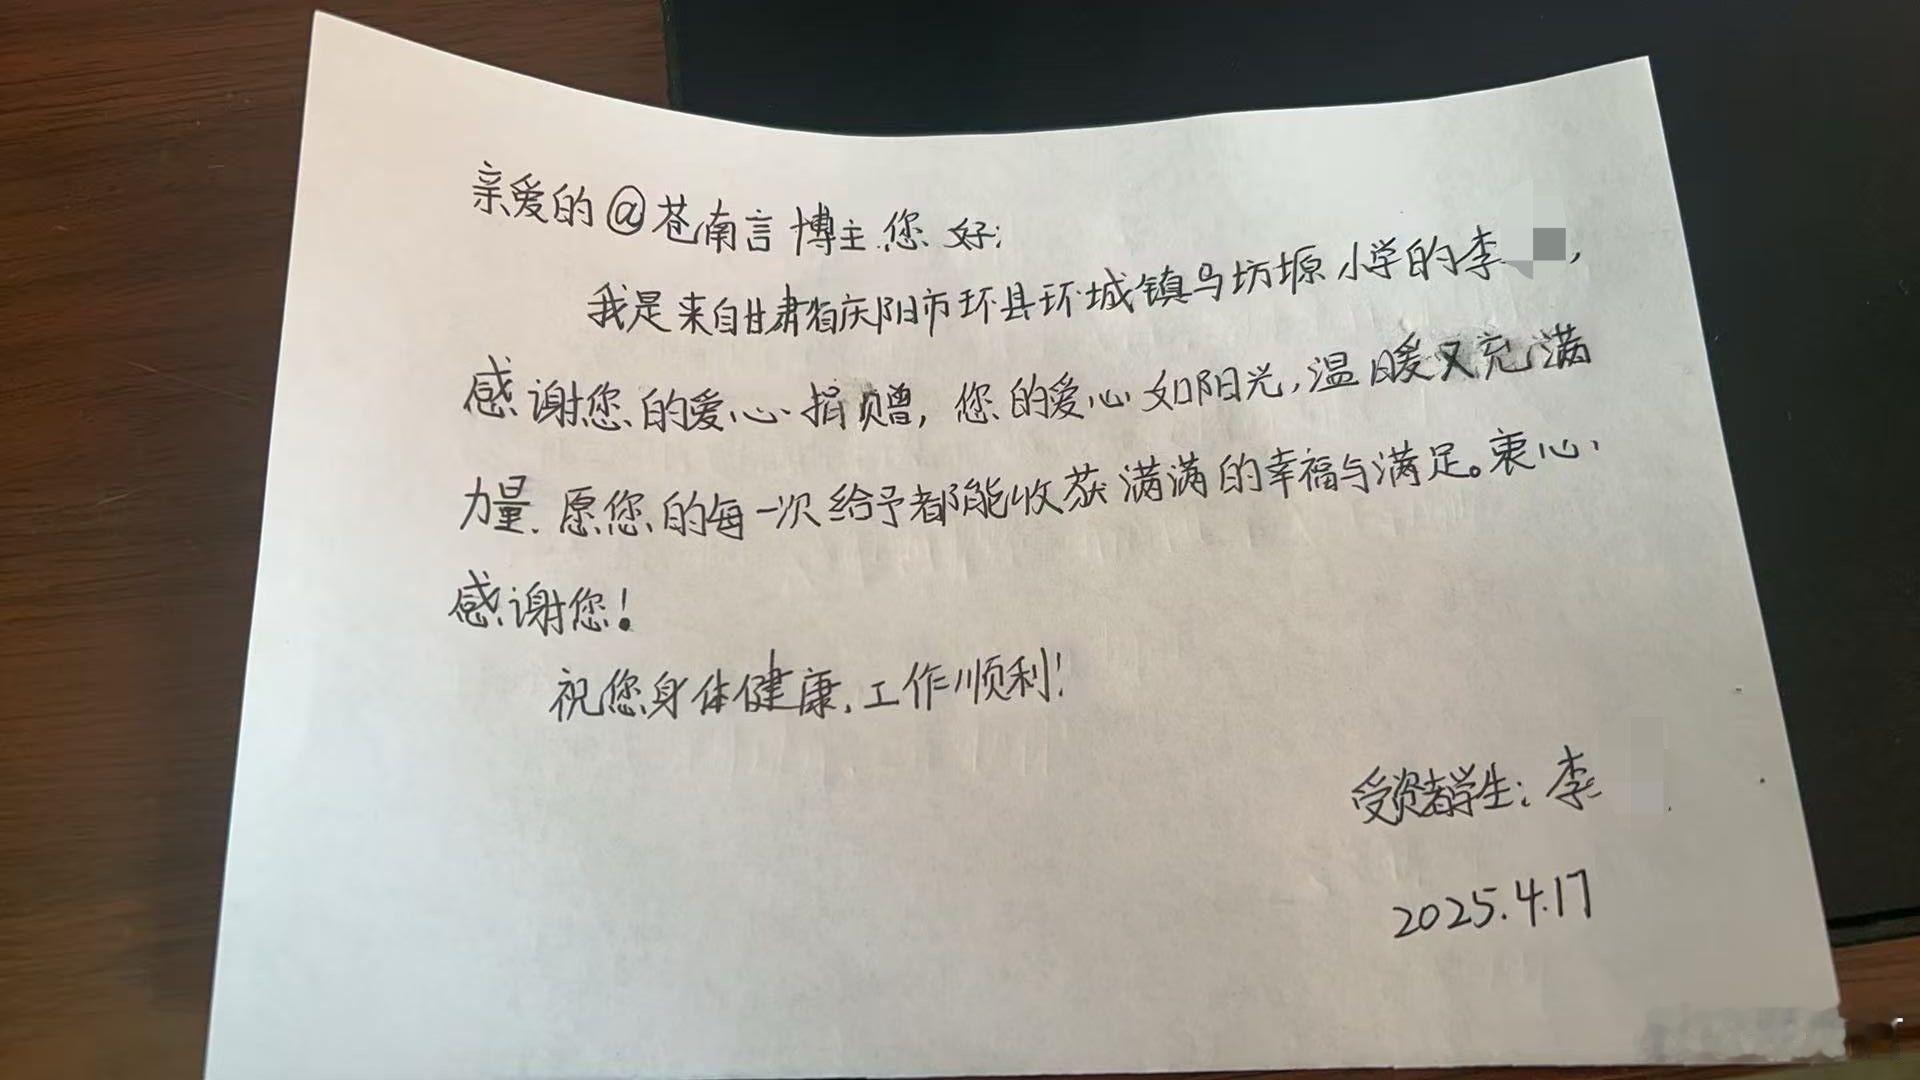 亲爱的@苍南言博主您好:
我是来自甘肃省庆阳市环县环城镇乌坊塬小学的李,
感谢您的爱心捐赠,您的爱心如阳光,温暖又充满
力量.愿您的每一次给予都能收获满满的幸福与满足。衷心
感谢您!
祝您身体健康,工作顺利!
受资者学生:李
2025.4.17